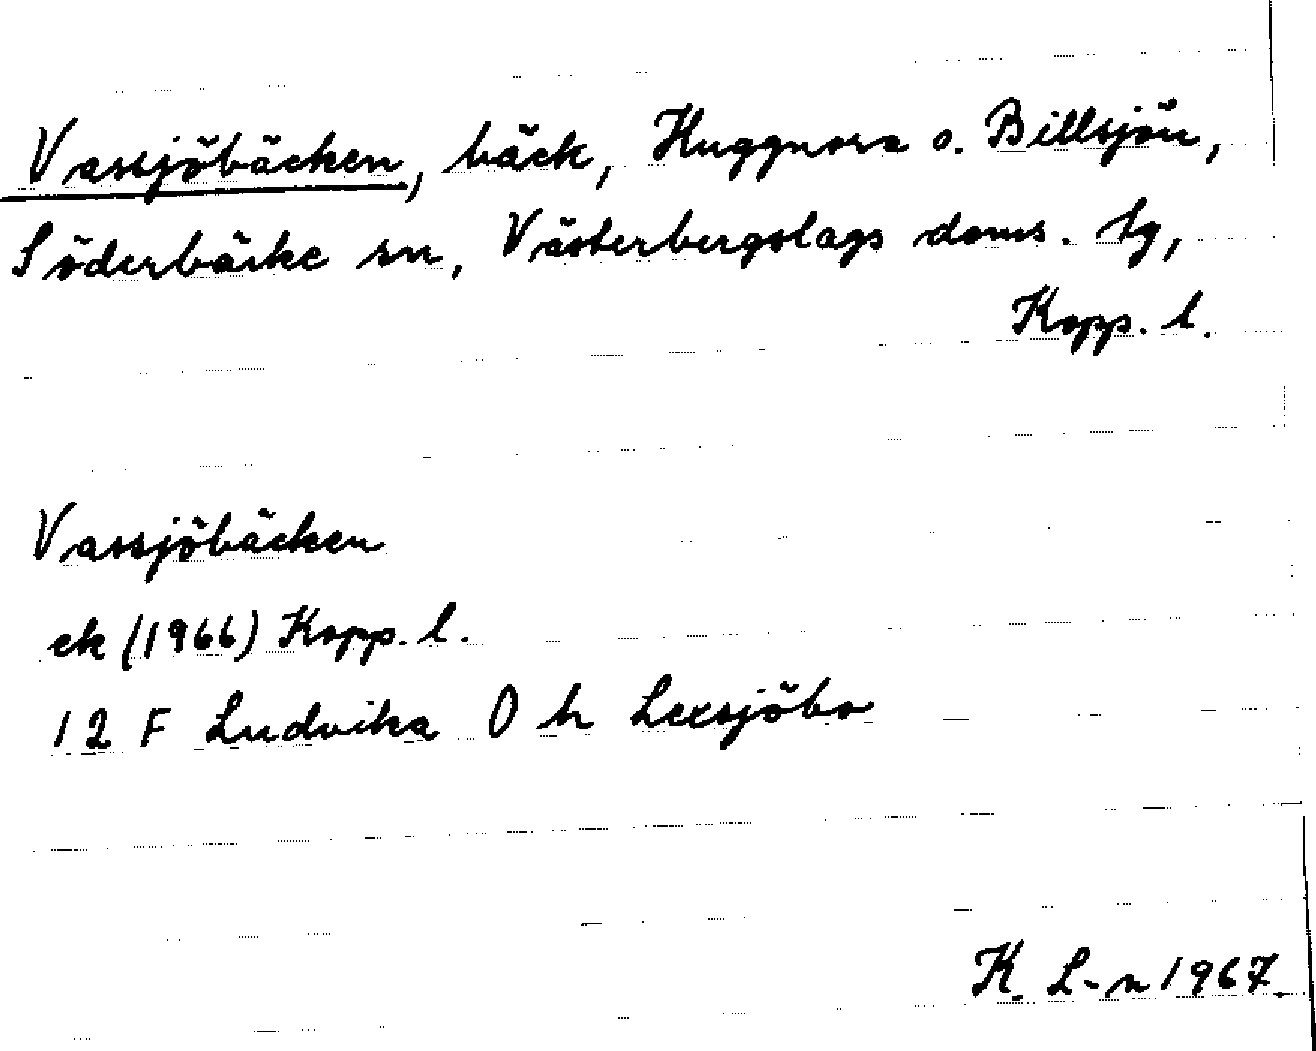 Vassjöbäcken, bäck, Huggnora o. Billsjön,
Söderbärke sn, Västerbergslags doms. tg,
Kopp. l.
Vassjöbäcken
ek (1966) Kopp. l.
12 F Ludvika 0 h Lexsjöbo
K. L-n 1967.